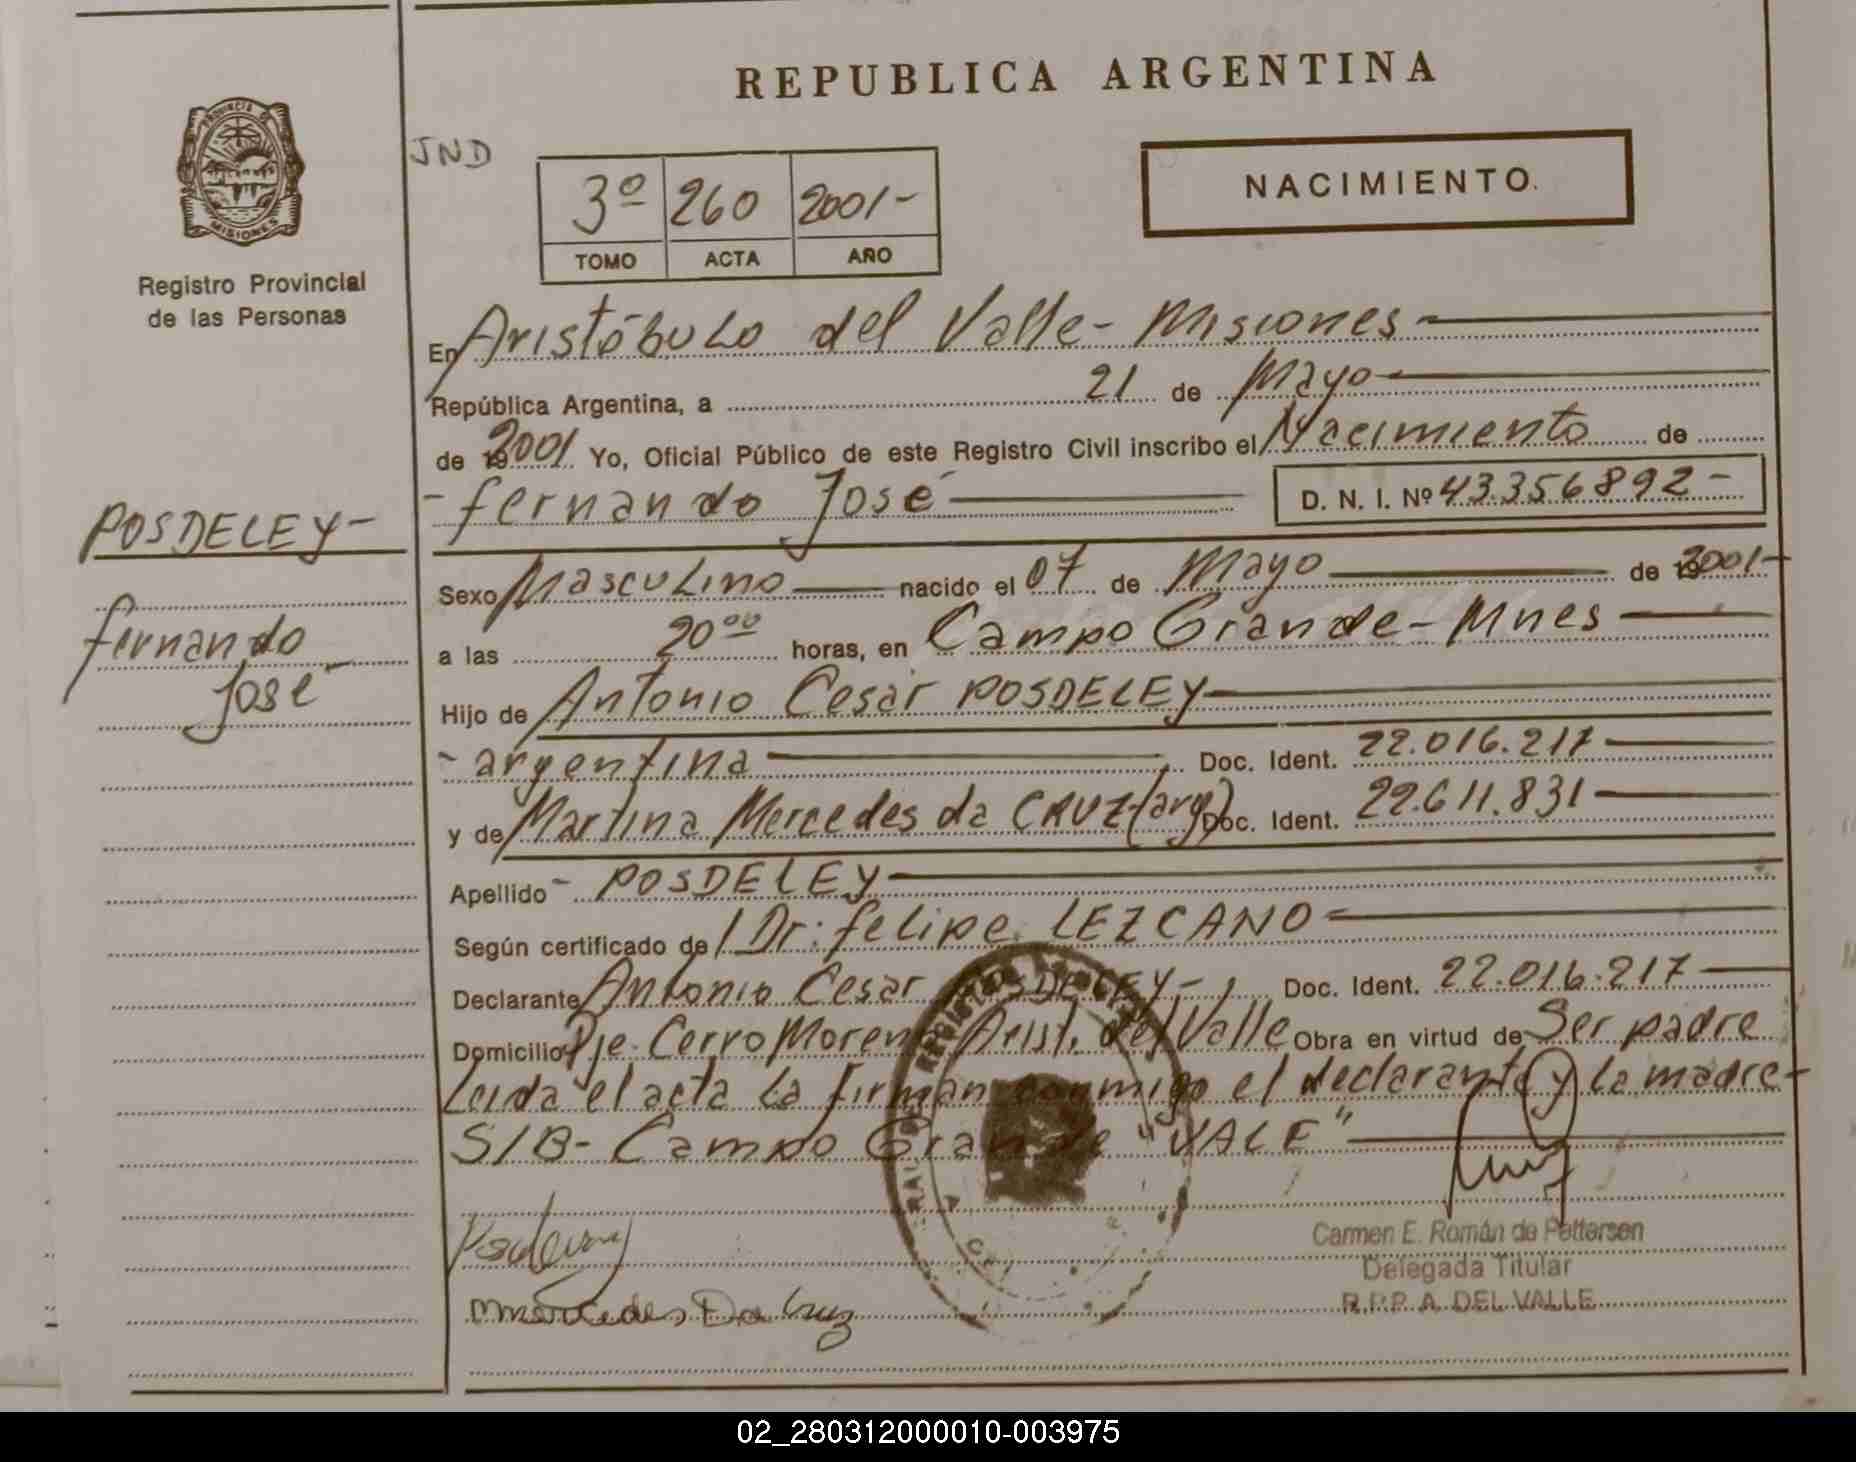 REPUBLICA ARGENTINA
PROVINCIA DE
MISIONES
Registro Provincial
de las Personas
JND
3º 260 2001-
TOMO ACTA AÑO
NACIMIENTO.
En Aristóbulo del Valle - Misiones
República Argentina, a 21 de Mayo
de 2001 Yo, Oficial Público de este Registro Civil inscribo el Nacimiento de
- fernando José D. N. I. Nº 43.356892 -
POSDELEY -
fernando
José
Sexo Masculino nacido el 07 de Mayo de 2001-
a las 20 00 horas, en Campo Grande - Mnes
Hijo de Antonio Cesar POSDELEY
- argentina Doc. Ident. 22.016.217
y de Martina Mercedes da CRUZ (arg) Doc. Ident. 22.611.831
Apellido - POSDELEY
Según certificado de Dr: felipe LEZCANO
Declarante Antonio Cesar POSDELEY - Doc. Ident. 22.016.217
Domicilio Pje. Cerro Moreno Arist. del Valle Obra en virtud de Ser padre
Leida el acta la firman conmigo el declarante y la madre -
S/B - Campo Grande "VALE"
Carmen E. Román de Pettersen
Delegada Titular
R.P.P. A. DEL VALLE
M Mercedes Da Cruz
02_280312000010-003975